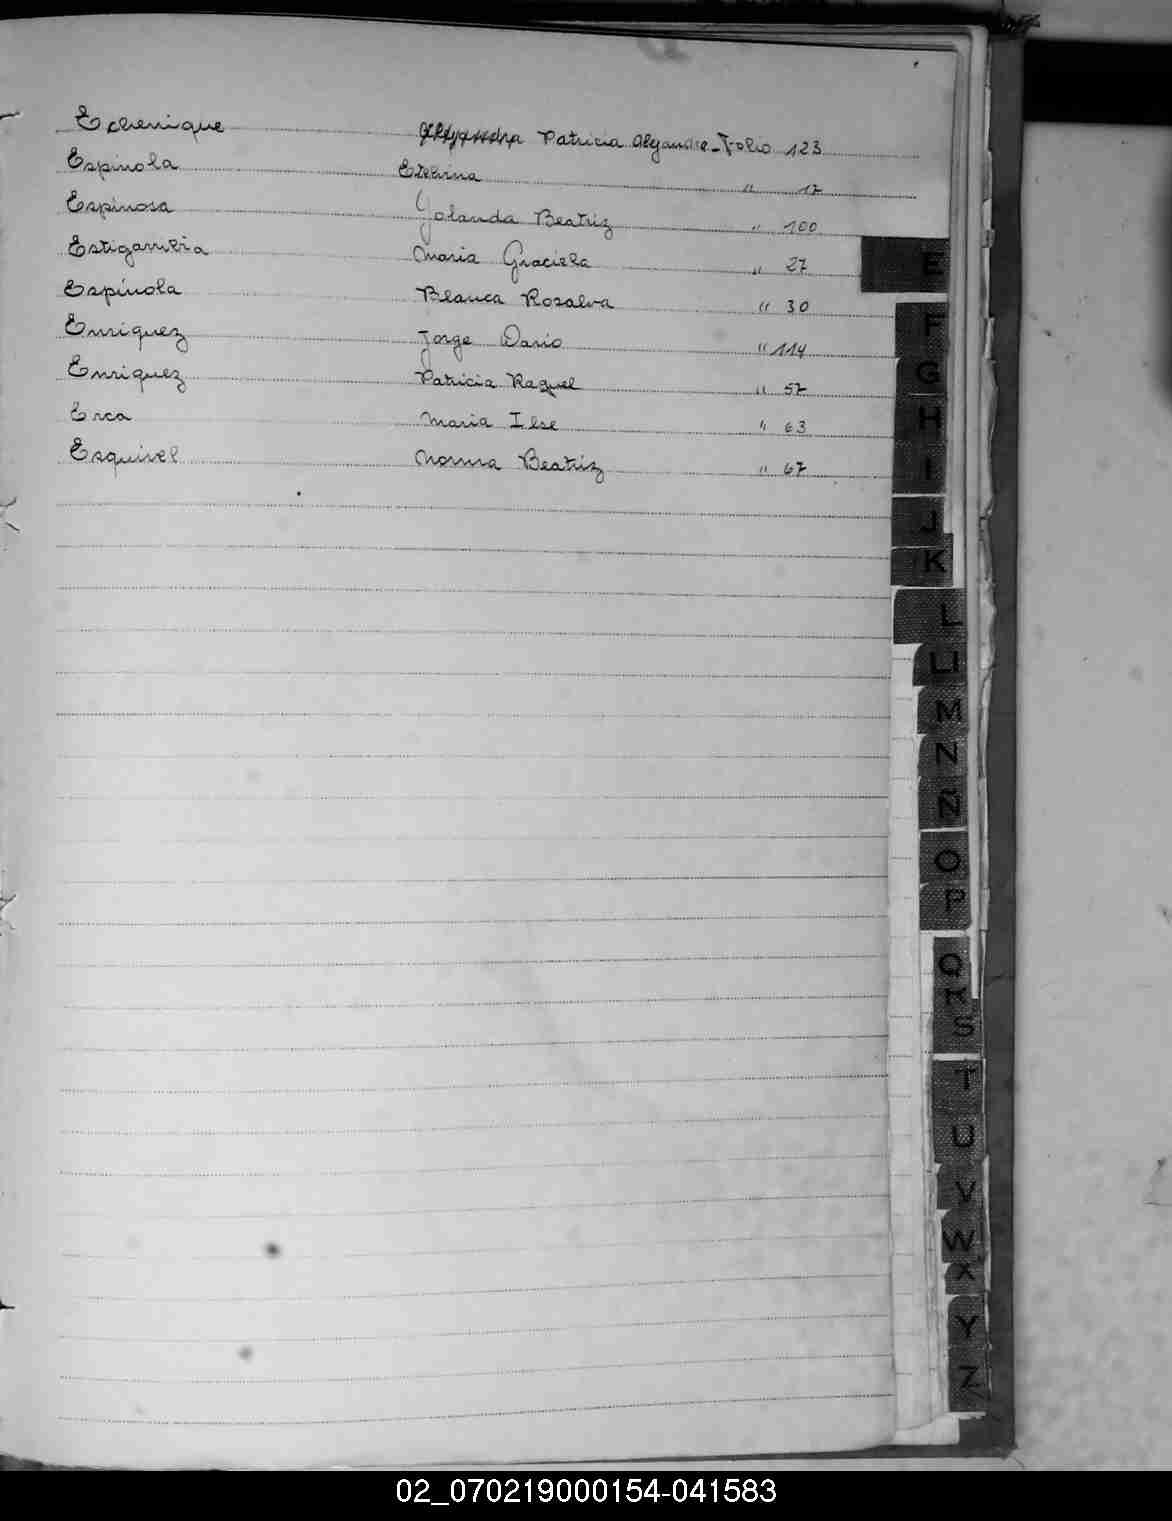 Echenique Patricia Alejandra - Folio 123
Espinola Etelvina " 17
Espinosa Yolanda Beatriz " 100
Estigarribia Maria Graciela " 27
Espínola Blanca Rosalva " 30
Enriquez Jorge Dario " 114
Enriquez Patricia Raquel " 57
Erca Maria Ilse " 63
Esquivel Norma Beatriz " 67
E
F
G
H
I
J
K
L
Ll
M
N
Ñ
O
P
Q
R
S
T
U
V
W
X
Y
Z
02_070219000154-041583